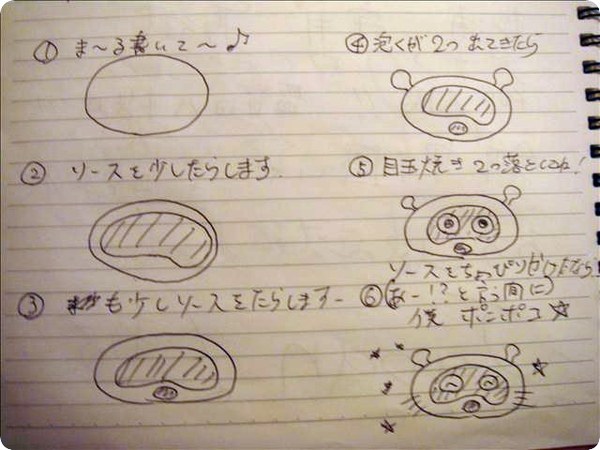 ① ま〜る書いて〜♪
② ソースを少したらします.
③ も少しソースをたらします-
④ 2つ出てきたら
⑤ 目玉焼き2つ落としてね!
ソースをちょっぴりかけたなら
⑥ (あー!?と言う間に)
僕 ポンポコ☆